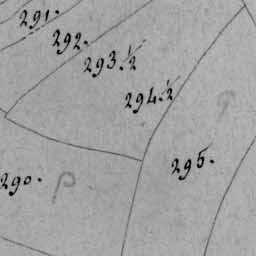 291.
292.
293.½
294.½
295.
290.